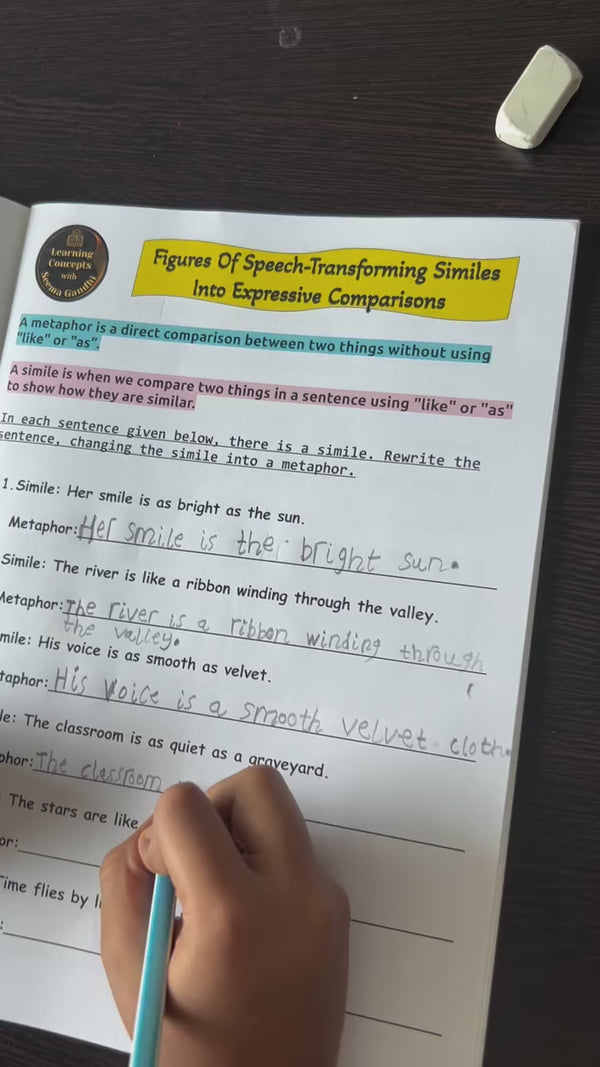 Learning
Concepts
with
Seema Gandhi
Figures Of Speech-Transforming Similes
Into Expressive Comparisons
A metaphor is a direct comparison between two things without using
"like" or "as".
A simile is when we compare two things in a sentence using "like" or "as"
to show how they are similar.
In each sentence given below, there is a simile. Rewrite the
sentence, changing the simile into a metaphor.
1. Simile: Her smile is as bright as the sun.
Metaphor: Her smile is the bright sun.
Simile: The river is like a ribbon winding through the valley.
Metaphor: The river is a ribbon winding through
the valley.
mile: His voice is as smooth as velvet.
taphor: His voice is a smooth velvet cloth.
le: The classroom is as quiet as a graveyard.
phor: The classroom
The stars are like
or:
Time flies by li
: